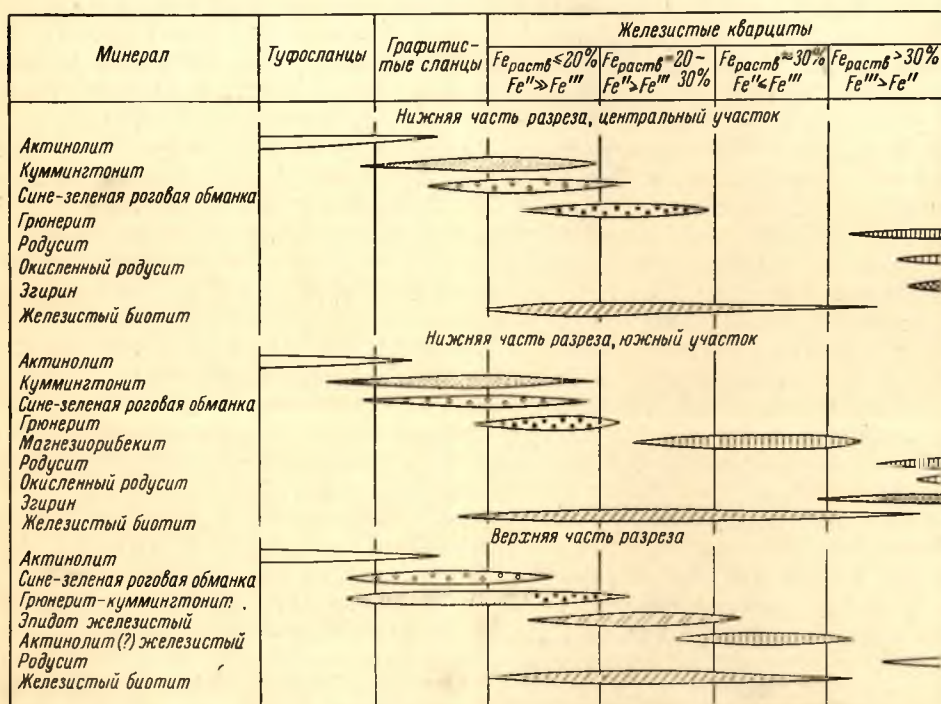 Минерал
Туфосланцы
Графитис-
тые сланцы
Железистые кварциты
Feраств ≤ 20%
Fe″ ≫ Fe‴
Feраств = 20 –
Fe″ > Fe‴ 30%
Feраств ≈ 30%
Fe″ ≤ Fe‴
Feраств > 30%
Fe‴ > Fe″
Нижняя часть разреза, центральный участок
Актинолит
Куммингтонит
Сине-зеленая роговая обманка
Грюнерит
Родусит
Окисленный родусит
Эгирин
Железистый биотит
Нижняя часть разреза, южный участок
Актинолит
Куммингтонит
Сине-зеленая роговая обманка
Грюнерит
Магнезиорибекит
Родусит
Окисленный родусит
Эгирин
Железистый биотит
Верхняя часть разреза
Актинолит
Сине-зеленая роговая обманка
Грюнерит-куммингтонит
Эпидот железистый
Актинолит (?) железистый
Родусит
Железистый биотит